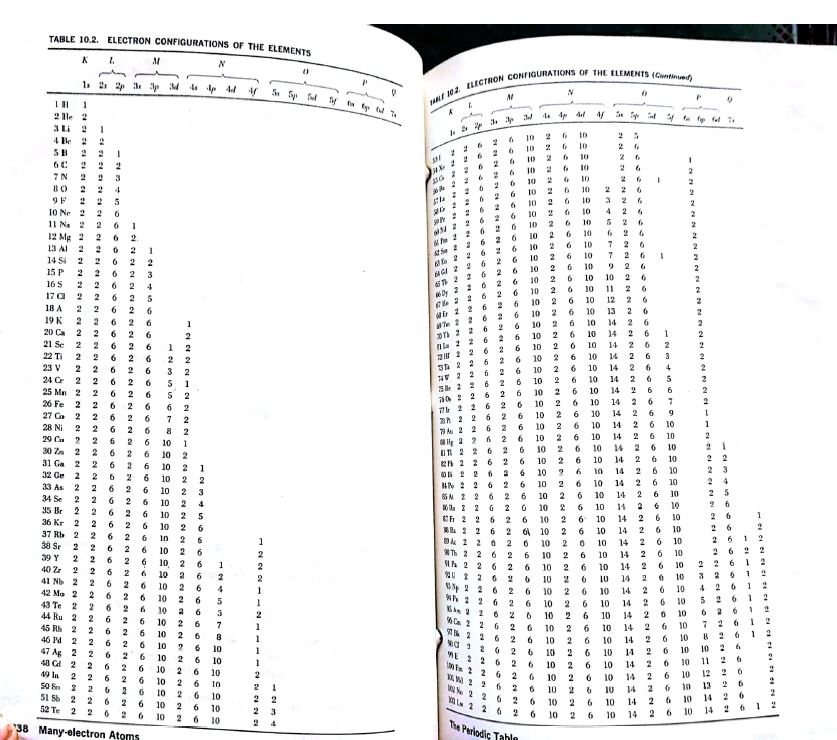 TABLE 10.2. ELECTRON CONFIGURATIONS OF THE ELEMENTS
K L M N O P Q
1s 2s 2p 3s 3p 3d 4s 4p 4d 4f 5s 5p 5d 5f 6s 6p 6d 7s
1 H 1
2 He 2
3 Li 2 1
4 Be 2 2
5 B 2 2 1
6 C 2 2 2
7 N 2 2 3
8 O 2 2 4
9 F 2 2 5
10 Ne 2 2 6
11 Na 2 2 6 1
12 Mg 2 2 6 2
13 Al 2 2 6 2 1
14 Si 2 2 6 2 2
15 P 2 2 6 2 3
16 S 2 2 6 2 4
17 Cl 2 2 6 2 5
18 A 2 2 6 2 6
19 K 2 2 6 2 6 1
20 Ca 2 2 6 2 6 2
21 Sc 2 2 6 2 6 1 2
22 Ti 2 2 6 2 6 2 2
23 V 2 2 6 2 6 3 2
24 Cr 2 2 6 2 6 5 1
25 Mn 2 2 6 2 6 5 2
26 Fe 2 2 6 2 6 6 2
27 Co 2 2 6 2 6 7 2
28 Ni 2 2 6 2 6 8 2
29 Cu 2 2 6 2 6 10 1
30 Zn 2 2 6 2 6 10 2
31 Ga 2 2 6 2 6 10 2 1
32 Ge 2 2 6 2 6 10 2 2
33 As 2 2 6 2 6 10 2 3
34 Se 2 2 6 2 6 10 2 4
35 Br 2 2 6 2 6 10 2 5
36 Kr 2 2 6 2 6 10 2 6
37 Rb 2 2 6 2 6 10 2 6 1
38 Sr 2 2 6 2 6 10 2 6 2
39 Y 2 2 6 2 6 10 2 6 1 2
40 Zr 2 2 6 2 6 10 2 6 2 2
41 Nb 2 2 6 2 6 10 2 6 4 1
42 Mo 2 2 6 2 6 10 2 6 5 1
43 Te 2 2 6 2 6 10 2 6 5 2
44 Ru 2 2 6 2 6 10 2 6 7 1
45 Rh 2 2 6 2 6 10 2 6 8 1
46 Pd 2 2 6 2 6 10 2 6 10
47 Ag 2 2 6 2 6 10 2 6 10 1
48 Cd 2 2 6 2 6 10 2 6 10 2
49 In 2 2 6 2 6 10 2 6 10 2 1
50 Sn 2 2 6 2 6 10 2 6 10 2 2
51 Sb 2 2 6 2 6 10 2 6 10 2 3
52 Te 2 2 6 2 6 10 2 6 10 2 4
38 Many-electron Atoms
TABLE 10.2. ELECTRON CONFIGURATIONS OF THE ELEMENTS (Continued)
K L M N O P Q
1s 2s 2p 3s 3p 3d 4s 4p 4d 4f 5s 5p 5d 5f 6s 6p 6d 7s
53 I 2 2 6 2 6 10 2 6 10 2 5
54 Xe 2 2 6 2 6 10 2 6 10 2 6
55 Cs 2 2 6 2 6 10 2 6 10 2 6 1
56 Ba 2 2 6 2 6 10 2 6 10 2 6 2
57 La 2 2 6 2 6 10 2 6 10 2 6 1 2
58 Ce 2 2 6 2 6 10 2 6 10 2 2 6 2
59 Pr 2 2 6 2 6 10 2 6 10 3 2 6 2
60 Nd 2 2 6 2 6 10 2 6 10 4 2 6 2
61 Pm 2 2 6 2 6 10 2 6 10 5 2 6 2
62 Sm 2 2 6 2 6 10 2 6 10 6 2 6 2
63 Eu 2 2 6 2 6 10 2 6 10 7 2 6 2
64 Gd 2 2 6 2 6 10 2 6 10 7 2 6 1 2
65 Tb 2 2 6 2 6 10 2 6 10 9 2 6 2
66 Dy 2 2 6 2 6 10 2 6 10 10 2 6 2
67 Ho 2 2 6 2 6 10 2 6 10 11 2 6 2
68 Er 2 2 6 2 6 10 2 6 10 12 2 6 2
69 Tm 2 2 6 2 6 10 2 6 10 13 2 6 2
70 Yb 2 2 6 2 6 10 2 6 10 14 2 6 2
71 Lu 2 2 6 2 6 10 2 6 10 14 2 6 1 2
72 Hf 2 2 6 2 6 10 2 6 10 14 2 6 2 2
73 Ta 2 2 6 2 6 10 2 6 10 14 2 6 3 2
74 W 2 2 6 2 6 10 2 6 10 14 2 6 4 2
75 Re 2 2 6 2 6 10 2 6 10 14 2 6 5 2
76 Os 2 2 6 2 6 10 2 6 10 14 2 6 6 2
77 Ir 2 2 6 2 6 10 2 6 10 14 2 6 7 2
78 Pt 2 2 6 2 6 10 2 6 10 14 2 6 9 1
79 Au 2 2 6 2 6 10 2 6 10 14 2 6 10 1
80 Hg 2 2 6 2 6 10 2 6 10 14 2 6 10 2
81 Tl 2 2 6 2 6 10 2 6 10 14 2 6 10 2 1
82 Pb 2 2 6 2 6 10 2 6 10 14 2 6 10 2 2
83 Bi 2 2 6 2 6 10 2 6 10 14 2 6 10 2 3
84 Po 2 2 6 2 6 10 2 6 10 14 2 6 10 2 4
85 At 2 2 6 2 6 10 2 6 10 14 2 6 10 2 5
86 Rn 2 2 6 2 6 10 2 6 10 14 2 6 10 2 6
87 Fr 2 2 6 2 6 10 2 6 10 14 2 6 10 2 6 1
88 Ra 2 2 6 2 6 10 2 6 10 14 2 6 10 2 6 2
89 Ac 2 2 6 2 6 10 2 6 10 14 2 6 10 2 6 1 2
90 Th 2 2 6 2 6 10 2 6 10 14 2 6 10 2 6 2 2
91 Pa 2 2 6 2 6 10 2 6 10 14 2 6 10 2 2 6 1 2
92 U 2 2 6 2 6 10 2 6 10 14 2 6 10 3 2 6 1 2
93 Np 2 2 6 2 6 10 2 6 10 14 2 6 10 4 2 6 1 2
94 Pu 2 2 6 2 6 10 2 6 10 14 2 6 10 5 2 6 1 2
95 Am 2 2 6 2 6 10 2 6 10 14 2 6 10 6 2 6 1 2
96 Cm 2 2 6 2 6 10 2 6 10 14 2 6 10 7 2 6 1 2
97 Bk 2 2 6 2 6 10 2 6 10 14 2 6 10 8 2 6 1 2
98 Cf 2 2 6 2 6 10 2 6 10 14 2 6 10 10 2 6 2
99 E 2 2 6 2 6 10 2 6 10 14 2 6 10 11 2 6 2
100 Fm 2 2 6 2 6 10 2 6 10 14 2 6 10 12 2 6 2
101 Md 2 2 6 2 6 10 2 6 10 14 2 6 10 13 2 6 2
102 No 2 2 6 2 6 10 2 6 10 14 2 6 10 14 2 6 2
103 Lw 2 2 6 2 6 10 2 6 10 14 2 6 10 14 2 6 1 2
The Periodic Table